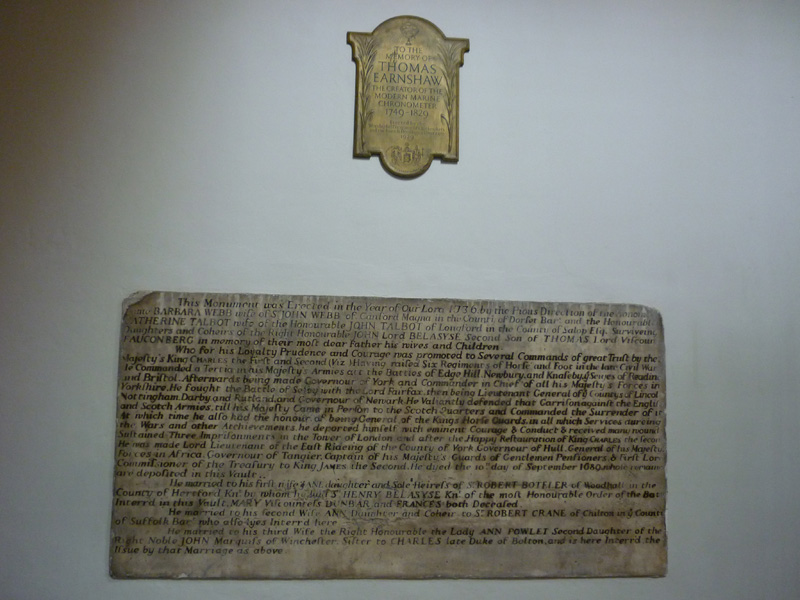 TO THE
MEMORY OF
THOMAS
EARNSHAW
THE CREATOR OF THE
MODERN MARINE
CHRONOMETER
1749-1829
This Monument was Erected in the Year of Our Lord 1736 by the Pious Direction of the Honour
BARBARA WEBB wife of Sr. JOHN WEBB of Canford Magna in the County of Dorset Bart. and the Honourable
CATHERINE TALBOT wife of the Honourable JOHN TALBOT of Longford in the County of Salop Esq. Surviveing
Daughters and Coheirs of the Right Honourable JOHN Lord BELASYSE Second Son of THOMAS Lord Viscoun
FAUCONBERG in memory of their most dear Father his wives and Children
Who for his Loyalty Prudence and Courage was promoted to Several Commands of great Trust by the
Majesty's King CHARLES the First and Second (Viz) Having raised Six Regiments of Horse and Foot in the late Civil Wars
he Commanded a Tertia in his Majesty's Armies att the Battles of Edge Hill Newbury, and Knaseby, Seiges of Reading
and Bristol. Afterwards being made Governour of York and Commander in Chief of all his Majesty's Forces in
Yorkshire. He Fought the Battle of Selby with the Lord Fairfax then being Lieutenant General of Countys of Lincoln
Nottingham, Darby and Rutland, and Governour of Newark. He Valiantly defended that Garrison against the English
and Scotch Armies, till his Majesty Came in Person to the Scotch Quarters and Commanded the Surrender of it
at which time he also had the honour of being General of the Kings Horse Guards, in all which Services dureing
the Wars and other Atchievements he deported himself with eminent Courage & Conduct & received many wounds
Sustained Three Imprisonments in the Tower of London and after the Happy Restauration of King CHARLES the Second
He was made Lord Lieutenant of the East Rideing of the County of York Governour of Hull, General of his Majesty's
Forces in Africa. Governour of Tangier. Captain of his Majesty's Guards of Gentlemen Pensioners & First Lor
Commissioner of the Treasury to King JAMES the Second. He dyed the 10th day of September 1689, whose remains
are deposited in this Vault
He married to his first wife JANE daughter and Sole Heiress of Sr. ROBERT BOTELER of Woodhall in the
County of Hereford Knt. by whom he had Sr. HENRY BELASYSE Knt. of the most Honourable Order of the Bat
Interrd in this Vault, MARY Viscountess DUNBAR and FRANCES both Deceased.
He married to his Second Wife ANN Daughter and Coheir to Sr. ROBERT CRANE of Chilton in ye County
of Suffolk Bart. who also lyes Interrd here
He married to his third Wife the Right Honourable the Lady ANN POWLET Second Daughter of the
Right Noble JOHN Marquiss of Winchester. Sister to CHARLES late Duke of Bolton, and is here Interrd the
Issue by that Marriage as above